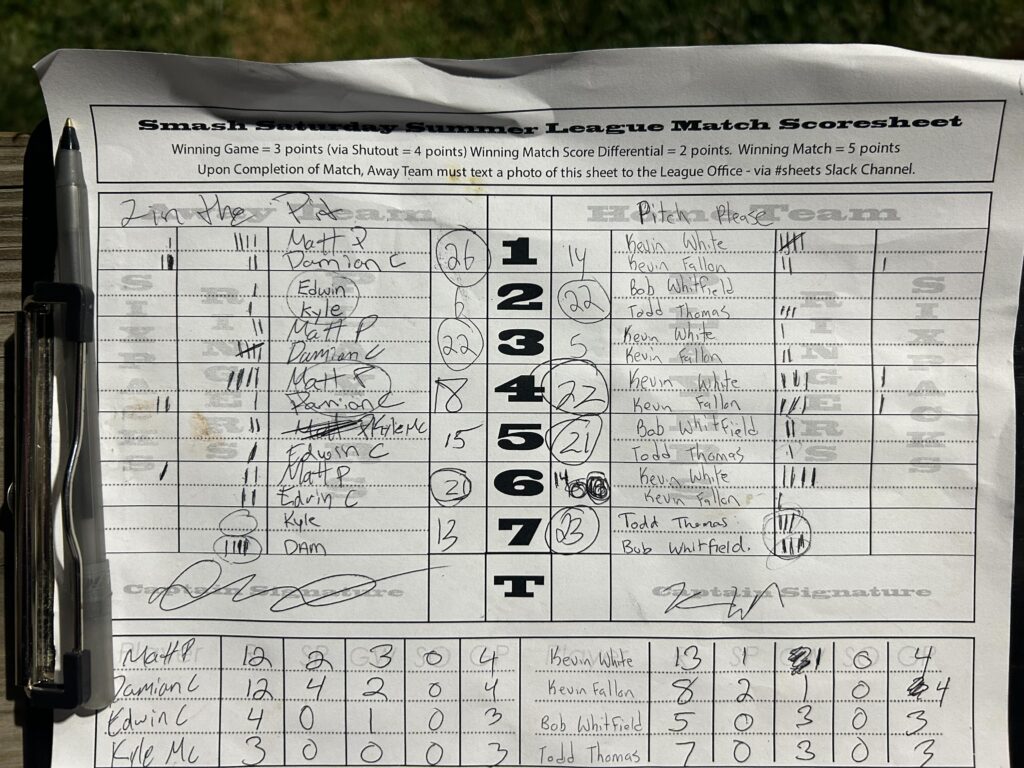 Smash Saturday Summer League Match Scoresheet
Winning Game = 3 points (via Shutout = 4 points) Winning Match Score Differential = 2 points. Winning Match = 5 points
Upon Completion of Match, Away Team must text a photo of this sheet to the League Office - via #sheets Slack Channel.
Away Team Home Team
2 in the Pit Pitch Please
Matt P 26 1 14 Kevin White
Damian C Kevin Fallon
Edwin 2 22 Bob Whitfield
Kyle Todd Thomas
Matt P 22 3 5 Kevin White
Damian C Kevin Fallon
Matt P 18 4 22 Kevin White
Damian C Kevin Fallon
Kyle Mc 15 5 21 Bob Whitfield
Edwin C Todd Thomas
Matt P 21 6 14 Kevin White
Edwin C Kevin Fallon
Kyle 13 7 23 Todd Thomas
DAM Bob Whitfield.
SIXPACKS RINGERS RINGERS SIXPACKS
T
Captain Signature Captain Signature
Matt P 12 2 3 0 4 Kevin White 13 1 1 0 4
Damian C 12 4 2 0 4 Kevin Fallon 8 2 1 0 4
Edwin C 4 0 1 0 3 Bob Whitfield 5 0 3 0 3
Kyle Mc 3 0 0 0 3 Todd Thomas 7 0 3 0 3